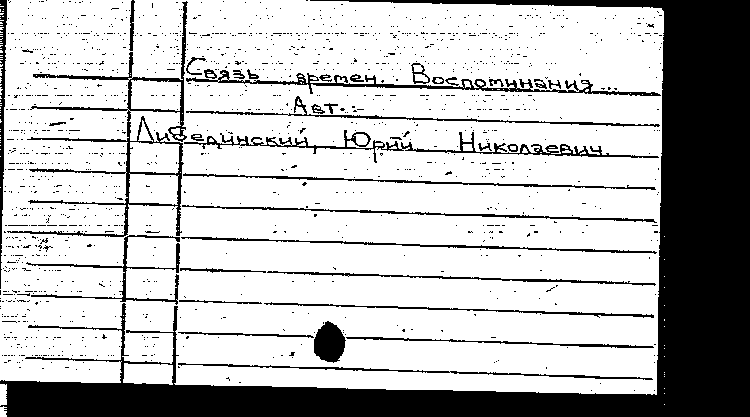 Связь времен. Воспоминания...
Авт.:-
Либединский, Юрий Николаевич.